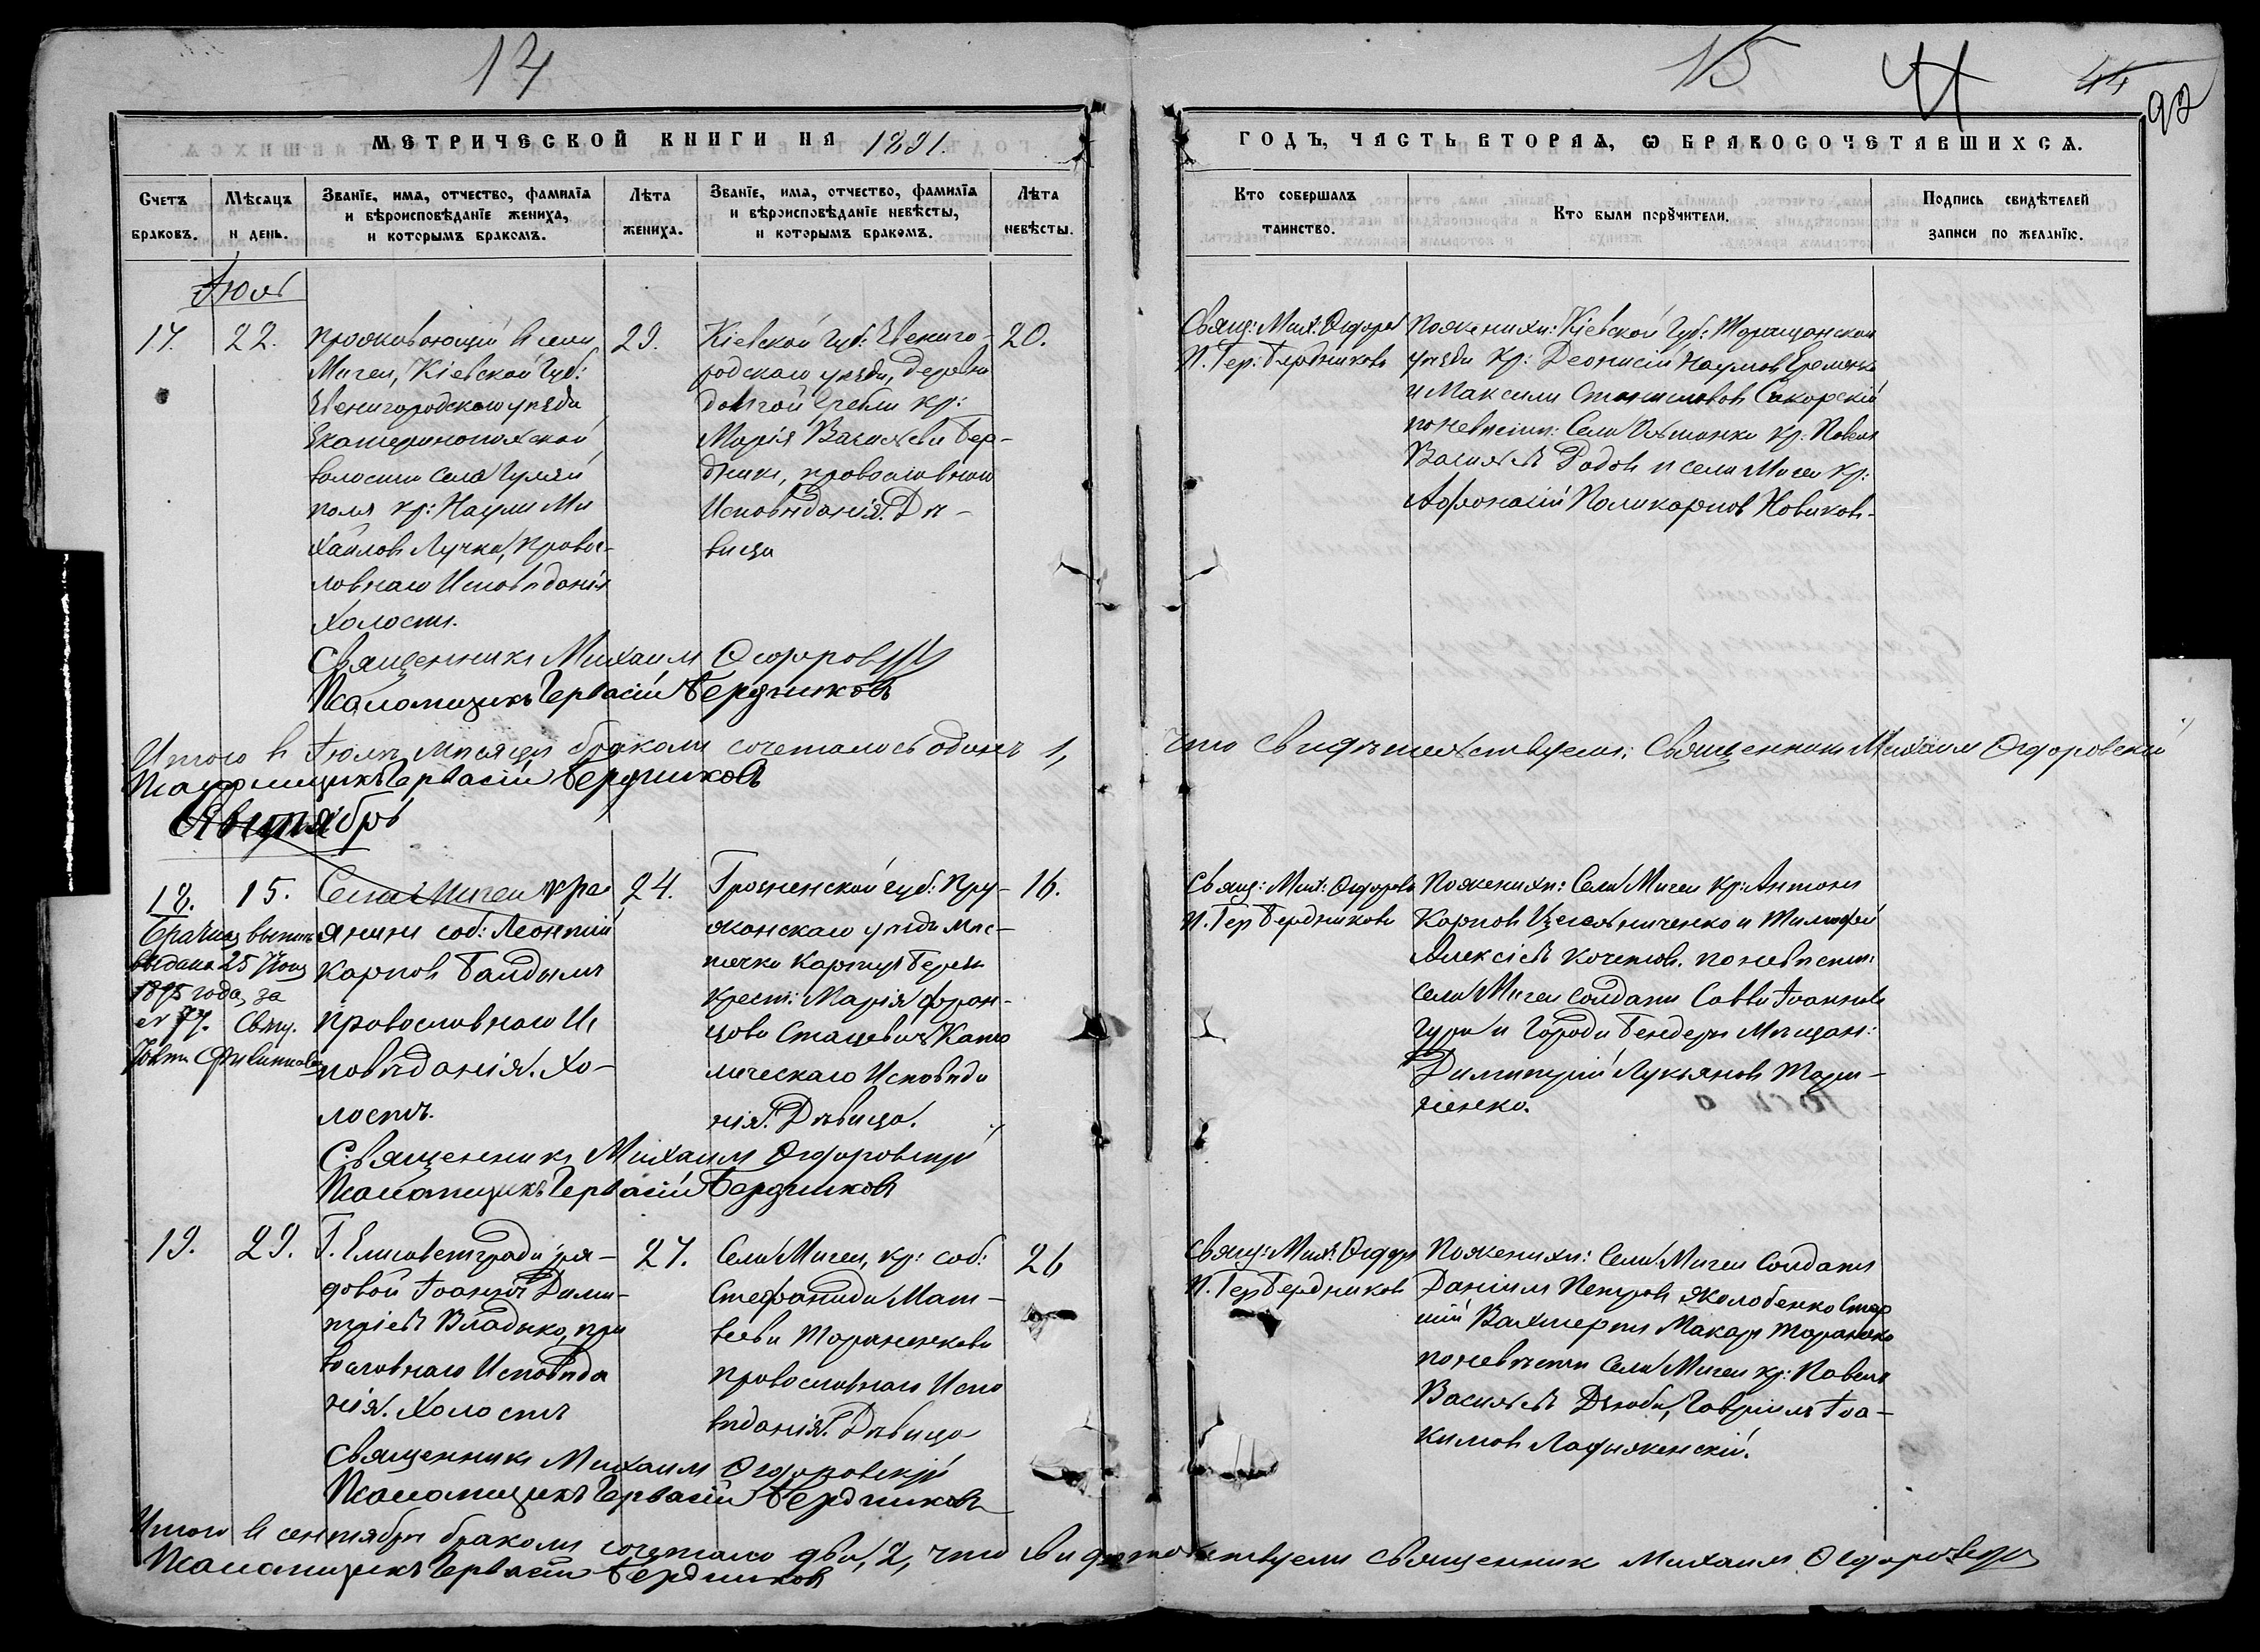 14
15
44
92
МЕТРИЧЕСКОЙ КНИГИ НА 1891.
ГОДЪ, ЧАСТЬ ВТОРАЯ, Ѡ БРАКОСОЧЕТАВШИХСЯ.
Счетъ браковъ.
Мѣсяцъ и день.
Званїе, имя, отчество, фамилїя и вѣроисповѣданїе жениха, и которымъ бракомъ.
Лѣта жениха.
Званїе, имя, отчество, фамилїя и вѣроисповѣданїе невѣсты, и которымъ бракомъ.
Лѣта невѣсты.
Кто совершалъ таинство.
Кто были порꙋчители.
Подпись свидѣтелей записи по желанїю.
Іюль
17.
22.
проживающій въ селѣ
Мигеи, Кіевской Губ:
Звенигородскаго уѣзда
Екатеринопольской
волости села Гуляй
поля кр: Наумъ Ми
хайловъ Лучка, Правос-
лавнаго Исповѣданія
Холостъ.
29.
Кіевской Губ: Звениго-
родскаго уѣзда, деревни
Долгой Гребли кр:
Марія Васильева Бер-
дникъ, православнаго
Исповѣданія. Дѣ-
вица
20.
Свящ: Мих: Ѳедоров
П. Гер: Бердниковъ
По женихѣ: Кіевской Губ: Таращанскаго
уѣзда кр: Деонисій Наумовъ
и Максимъ Станиславовъ
по невѣстѣ: Села кр: Павелъ
Васильевъ и села Мигеи кр:
Афанасій Поликарповъ Новиковъ.
Священникъ Михаилъ Ѳедоровскій
Псаломщикъ Гервасій Бердниковъ
Итого въ Іюлѣ мѣсяцѣ бракомъ сочеталось одинъ 1, что свидѣтельствуемъ: Священникъ Михаилъ Ѳедоровскій
Псаломщикъ Гервасій Бердниковъ
Сентябрь
18.
15.
Села Мигеи кре
янинъ соб: Леонтій
Карповъ
православнаго Ис
повѣданія. Хо-
лостъ.
24.
Гродненской губ: Пру-
жанскаго уѣзда мѣс-
течка Картузъ Береза
крест: Марія Фран-
цова Сташевичъ Като
лическаго Исповѣда
нія. Дѣвица.
16.
выдана 25
1895 года, за
№ 77. Свящ.
Свящ: Мих: Ѳедоров
П. Гер Бердниковъ
По женихѣ: Села Мигеи кр: Антонъ
Карповъ и Тимофей
Алексіевъ Кочетовъ. по невѣстѣ:
села Мигеи солдатъ Савва Іоанновъ
Гура и Города Бендеръ Мѣщан:
Димитрій Лукьяновъ
ненко.
Священникъ Михаилъ Ѳедоровскій
Псаломщикъ Гервасій Бердниковъ
19.
29.
Г. Елисаветграда ря-
довой Іоаннъ Дими-
тріевъ Владыко, пра
вославнаго Исповѣда
нія. Холостъ
27.
Села Мигеи, кр: соб:
Стефанида Мат-
веева Тараненкова
православнаго Испо
вѣданія. Дѣвица
26
Свящ: Мих: Ѳедор
П. Гер Бердниковъ
По женихѣ: Села Мигеи Солдатъ
Даніилъ Петровъ Жолобенко Стар
шій Вахмертръ Макаръ Тараненко
по невѣстѣ Села Мигеи кр: Павелъ
Васильевъ Дзюба, Гавріилъ Іоа-
кимовъ
Священникъ Михаилъ Ѳедоровскій
Псаломщикъ Гервасій Бердниковъ
Итого въ сентябрѣ бракомъ сочеталось два, 2, что свидѣтельствуемъ Священникъ Михаилъ Ѳедоровскій
Псаломщикъ Гервасій Бердниковъ